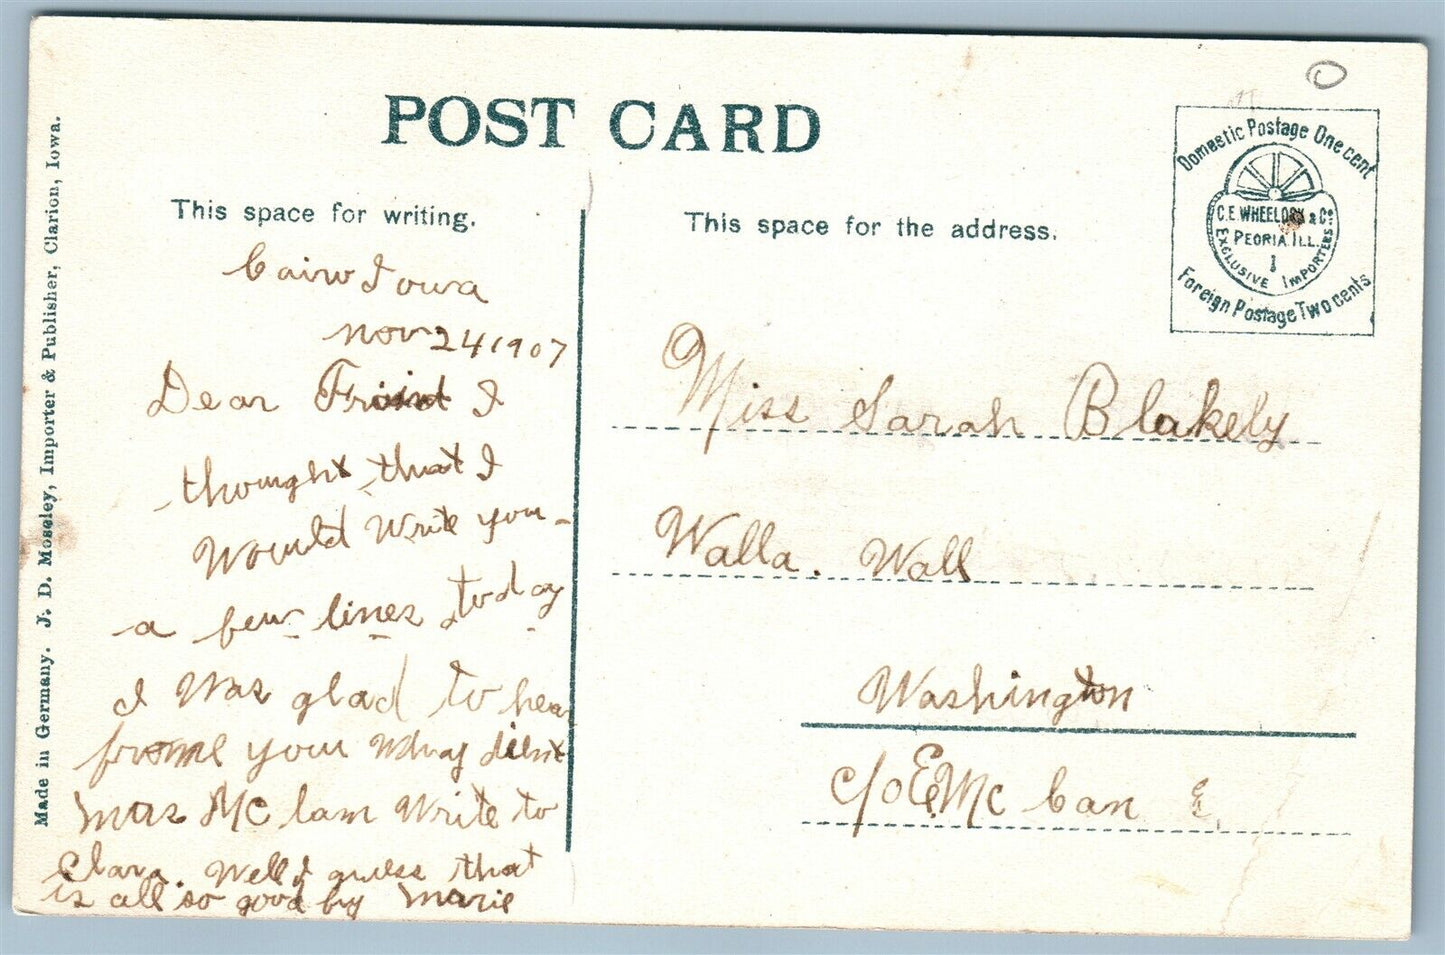 POST CARD
This space for writing.
This space for the address.
Domestic Postage One cent
C.E. WHEELOCK & Co.
PEORIA. ILL.
EXCLUSIVE IMPORTERS.
1
Foreign Postage Two cents
Made in Germany. J. D. Moseley, Importer & Publisher, Clarion, Iowa.
Iowa
Nov 24 1907
Dear I
thought that I
Would Write you
a few lines today
I Was glad to hear
your Why
Mc Write to
Clara. Well I guess that
is all so good by Marie
Miss Sarah Blakely
Walla. Wall
Washington
c/o E. Mc Can